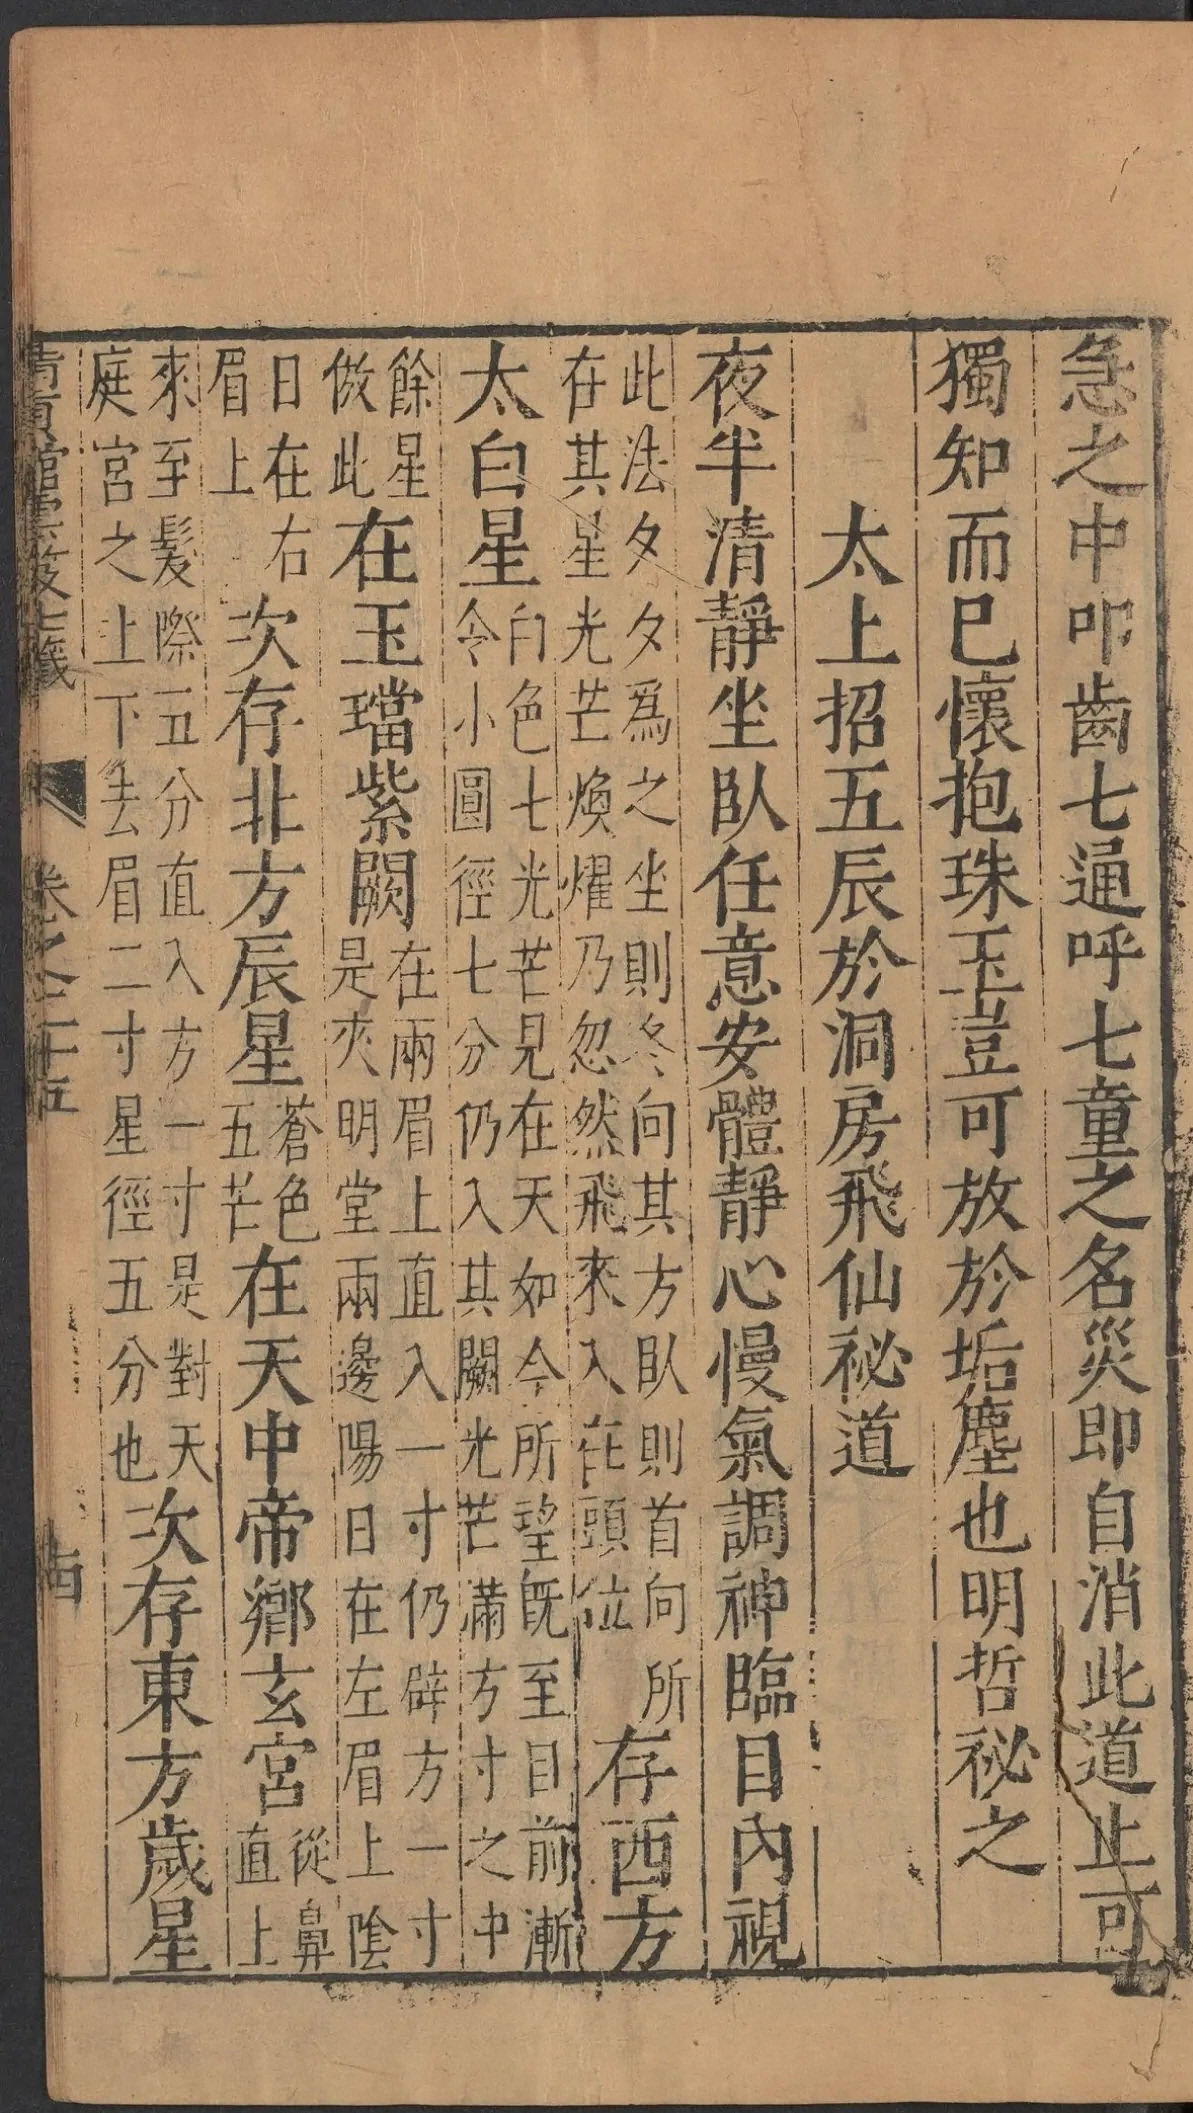 急之中叩齒七通呼七童之名災即自消此道止可
獨知而已懷抱珠玉豈可放於垢塵也明哲祕之
太上招五辰於洞房飛仙祕道
夜半清靜坐臥任意安體靜心慢氣調神臨目內視
此法夕夕爲之坐則冬向其方臥則首向所
在其星光芒煥耀乃忽然飛來入在頭位
存西方
太白星
白色七光芒見在天如今所望既至目前漸
令小圓徑七分仍入其闕光芒滿方寸之中
餘星
倣此
在玉璫紫闕
在兩眉上直入一寸仍辟方一寸
是夾明堂兩邊陽日在左眉上陰
日在右
眉上
次存北方辰星
蒼色
五芒
在天中帝鄉玄宮
從鼻
直上
來至髮際五分直入方一寸是對天
庭宮之上下去眉二寸星徑五分也
次存東方歲星
清真館雲笈七籤
卷之二十五